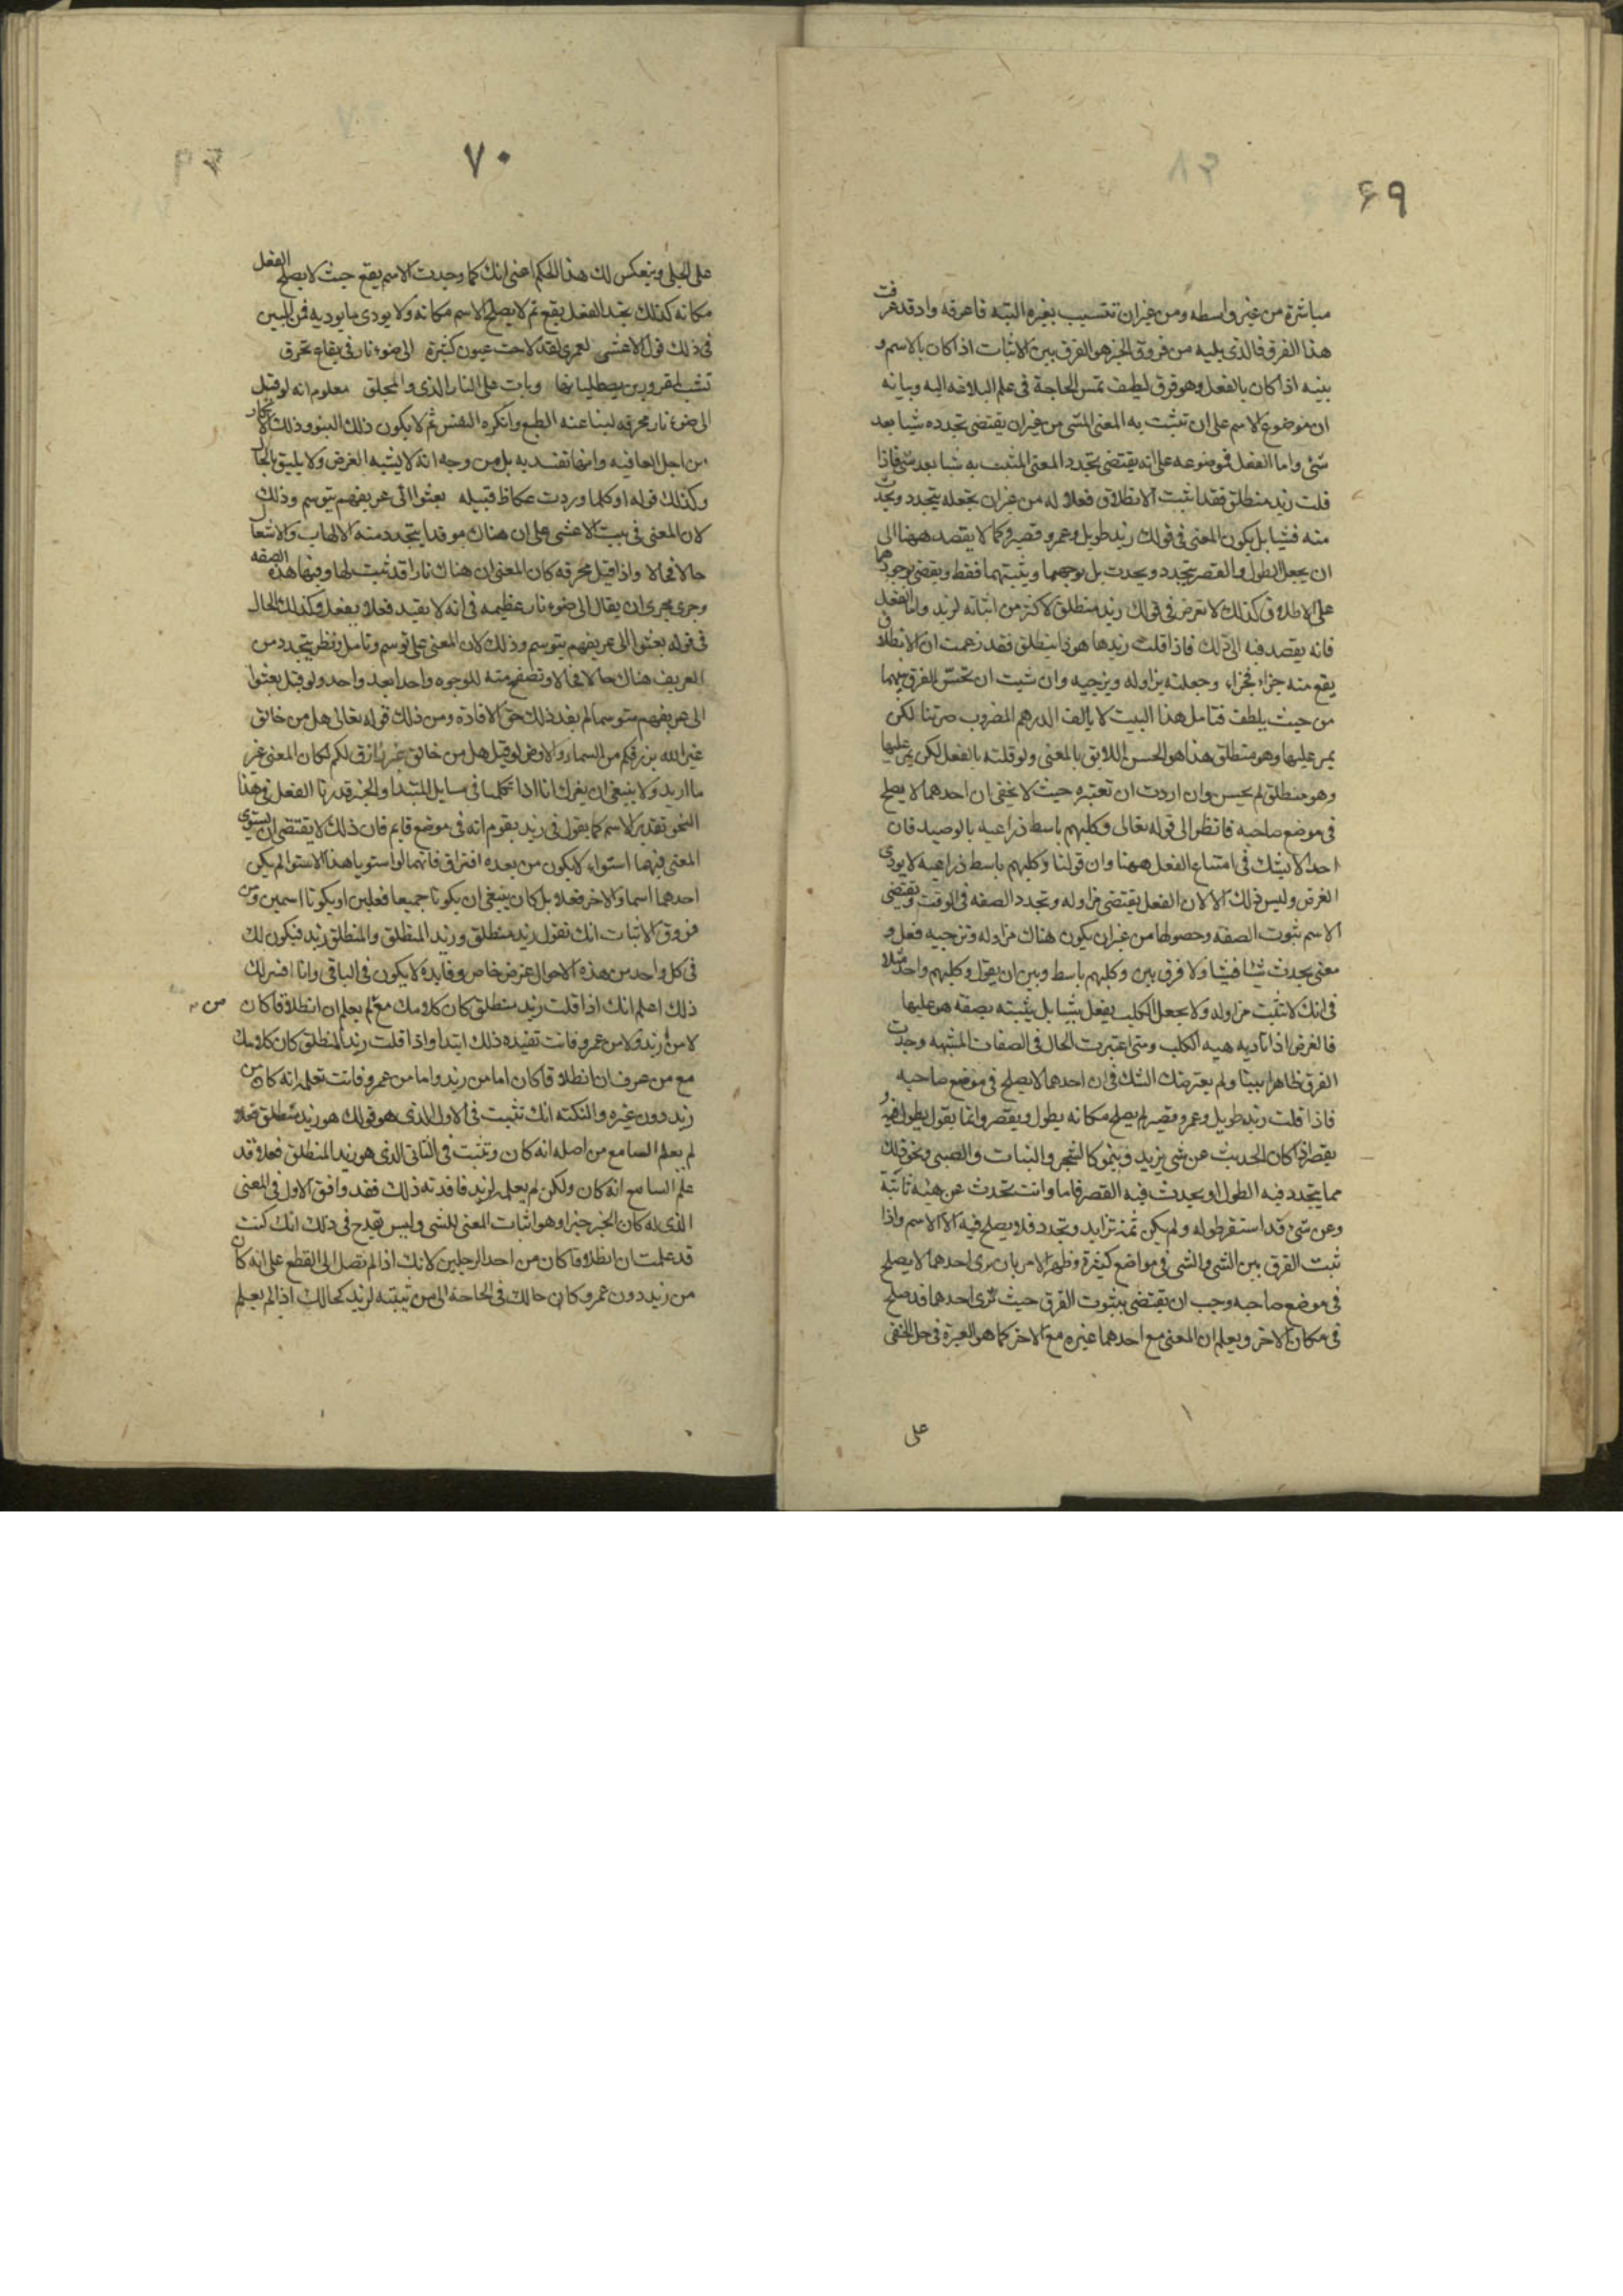 ۶۹
مباشرة من غير واسطه ومن غير ان تتسبب بغيره اليه فاعرفه واد قد عرفت
هذا الفرق فالذى يليه من فروق الخبر هو الفرق بين الاثبات اذا كان بالاسم و
بينه اذا كان بالفعل وهو فرق لطيف تمس الحاجة فى علم البلاغه اليه وبيانه
ان موضوع الاسم على ان تثبت به المعنى للشى من غير ان يقتضى تجدده شيا بعد
شئ واما الفعل فموضوعه على انه يقتضى تجدد المعنى المثبت به شيا بعد شى فاذا
قلت زيد منطلق فقد اثبت الانطلاق فعلا له من غير ان تجعله يتجدد ويحدث
منه فشيا بل يكون المعنى فى قولك زيد طويل وعمرو قصير وكما لا يقصد ههنا الى
ان يجعل الطول والقصر يتجدد ويحدث بل يوجبهما ويثبتهما فقط ويقضى بوجودهما
على الاطلاق كذلك لا تعرض فى قولك زيد منطلق لاكثر من اثباته لزيد واما الفعل
فانه يقصد فيه الى ذلك فاذا قلت زيد ها هو ذا ينطلق فقد زعمت ان الانطلاق
يقع منه جزاء فجزاء وجعلته يزاوله ويزجيه وان شيت ان تحس الفرق بينهما
من حيث يلطف فتامل هذا البيت لا يالف الدرهم المضروب صرتنا لكن
يمر عليها وهو منطلق هذا هو الحسن اللايق بالمعنى ولو قلته بالفعل لكن يمر عليها
وهو منطلق لم يحسن وان اردت ان تعتبره حيث لا يخفى ان احدهما لا يصلح
فى موضع صاحبه فانظر الى قوله تعالى وكلبهم باسط ذراعيه بالوصيد فان
احدا لا يشك فى امتناع الفعل ههنا وان قولنا وكلبهم باسط ذراعيه لا يودى
الغرض وليس ذلك الا لان الفعل يقتضى مزاوله وتجدد الصفه فى الوقت ويقتضى
الاسم ثبوت الصفه وحصولها من غير ان يكون هناك مزاوله وتزجيه فعل و
معنى يحدث شيا فشيا ولا فرق بين وكلبهم باسط وبين ان يقول وكلبهم واحد مثلا
فى انك لا تثبت مزاوله ولا يجعل الكلب يفعل شيا بل يثبته بصفه هو عليها
فالغرض اذا تاديه هيه الكلب ومتى اعتبرت الحال فى الصفات المشبهه وجدت
الفرق ظاهرا بينا ولم يعترضك الشك فى ان احدهما لا يصلح فى موضع صاحبه
فاذا قلت زيد طويل وعمرو قصير لم يصلح مكانه يطول ويقصر وانما يقول يطول و
يقصر اذا كان الحديث عن شى يزيد وينمو كالشجر والنبات والصبى ونحو ذلك
مما يتجدد فيه الطول او يحدث فيه القصر فاما وانت تحدث عن هيئه ثابتة
وعن شئ قد استقر طوله ولم يكن ثمه تزايد وتجدد فلا يصلح فيه الا الاسم واذا
ثبت الفرق بين الشى والشى فى مواضع كثيرة وظهر الامر بان يرى احدهما لا يصلح
فى موضع صاحبه وجب ان يقتضى بثبوت الفرق حيث ترى احدهما قد صلح
فى مكان الاخر ويعلم ان المعنى مع احدهما غيره مع الاخر كما هو العبرة فى حل الخفى
على
۷۰
على الجلى وينعكس لك هذا الحكم اعنى انك كما وجدت الاسم يقع حيث لا يصلح الفعل
مكانه كذلك تجد الفعل يقع ثم لا يصلح الاسم مكانه ولا يودى ما يوديه فمن البين
فى ذلك قول الاعشى لعمرى لقد لاحت عيون كثيرة الى ضوء نار فى يفاع تحرق
تشب لمقرورين يصطليانها وبات على النار الندى والمحلق معلوم انه لو قيل
الى ضوء نار محرقه لنبا عنه الطبع وانكره النفس ثم لا يكون ذلك النبو وذلك الانكار
من اجل القافيه وانها تفسد به بل من وجه انه لا يشبه الغرض ولا يليق بالحال
وكذلك قوله او كلما وردت عكاظ قبيله بعثوا الى عريفهم يتوسم وذلك
لان المعنى فى بيت الاعشى على ان هناك موقدا يتجدد منه الالهاب والاشعال
حالا فحالا واذا قيل محرقه كان المعنى ان هناك نارا قد ثبت لها وفيها هذه الصفه
وجرى مجرى ان يقال الى ضوء نار عظيمه فى انه لا يفيد فعلا يفعل وكذلك الحال
فى قوله بعثوا الى عريفهم يتوسم وذلك لان المعنى على توسم وتامل ونظر يتجدد من
العريف هناك حالا فحالا وتصفح منه للوجوه واحدا بعد واحد ولو قيل بعثوا
الى عريفهم متوسما لم يفد ذلك حق الافادة ومن ذلك قوله تعالى هل من خالق
غير الله يرزقكم من السماء والارض لو قيل هل من خالق غير الله رازق لكم لكان المعنى غير
ما اريد ولا ينبغى ان يغرك انا اذا تكلمنا فى مسايل المبتدا والخبر قدرنا الفعل فى هذا
النحو تقدير الاسم كما يقول فى زيد يقوم انه فى موضع قايم فان ذلك لا يقتضى ان يستوى
المعنى فيهما استواء لا يكون من بعده افتراق فانهما لو استويا هذا الاستوا لم يكن
احدهما اسما والاخر فعلا بل كان ينبغى ان يكونا جميعا فعلين او يكونا اسمين ومن
فروق الاثبات انك تقول زيد منطلق وزيد المنطلق والمنطلق زيد فيكون لك
فى كل واحد من هذه الاحوال غرض خاص وفايدة لا يكون فى الباقى وانا افسر لك
ذلك اعلم انك اذا قلت زيد منطلق كان كلامك مع لم يعلم ان انطلاقا كان من
لا من زيد ولا من عمرو فانت تفيده ذلك ابتدا واذا قلت زيد المنطلق كان كلامك
مع من عرف ان انطلاقا كان اما من زيد واما من عمرو فانت تعلمه انه كان من
زيد دون غيره والنكته انك تثبت فى الاول الذى هو قولك هو زيد منطلق فعلا
لم يعلم السامع من اصله انه كان وتثبت فى الثانى الذى هو زيد المنطلق فعلا قد
علم السامع انه كان ولكن لم يعلمه لزيد فافدته ذلك فقد وافق الاول فى المعنى
الذى له كان الخبر خبرا وهو اثبات المعنى للشى وليس يقدح فى ذلك انك كنت
قد علمت ان انطلاقا كان من احد الرجلين لانك اذا لم تصل الى القطع على انه كان
من زيد دون عمرو كان حالك فى الحاجة الى من يثبته لزيد كحالك اذا لم يعلم